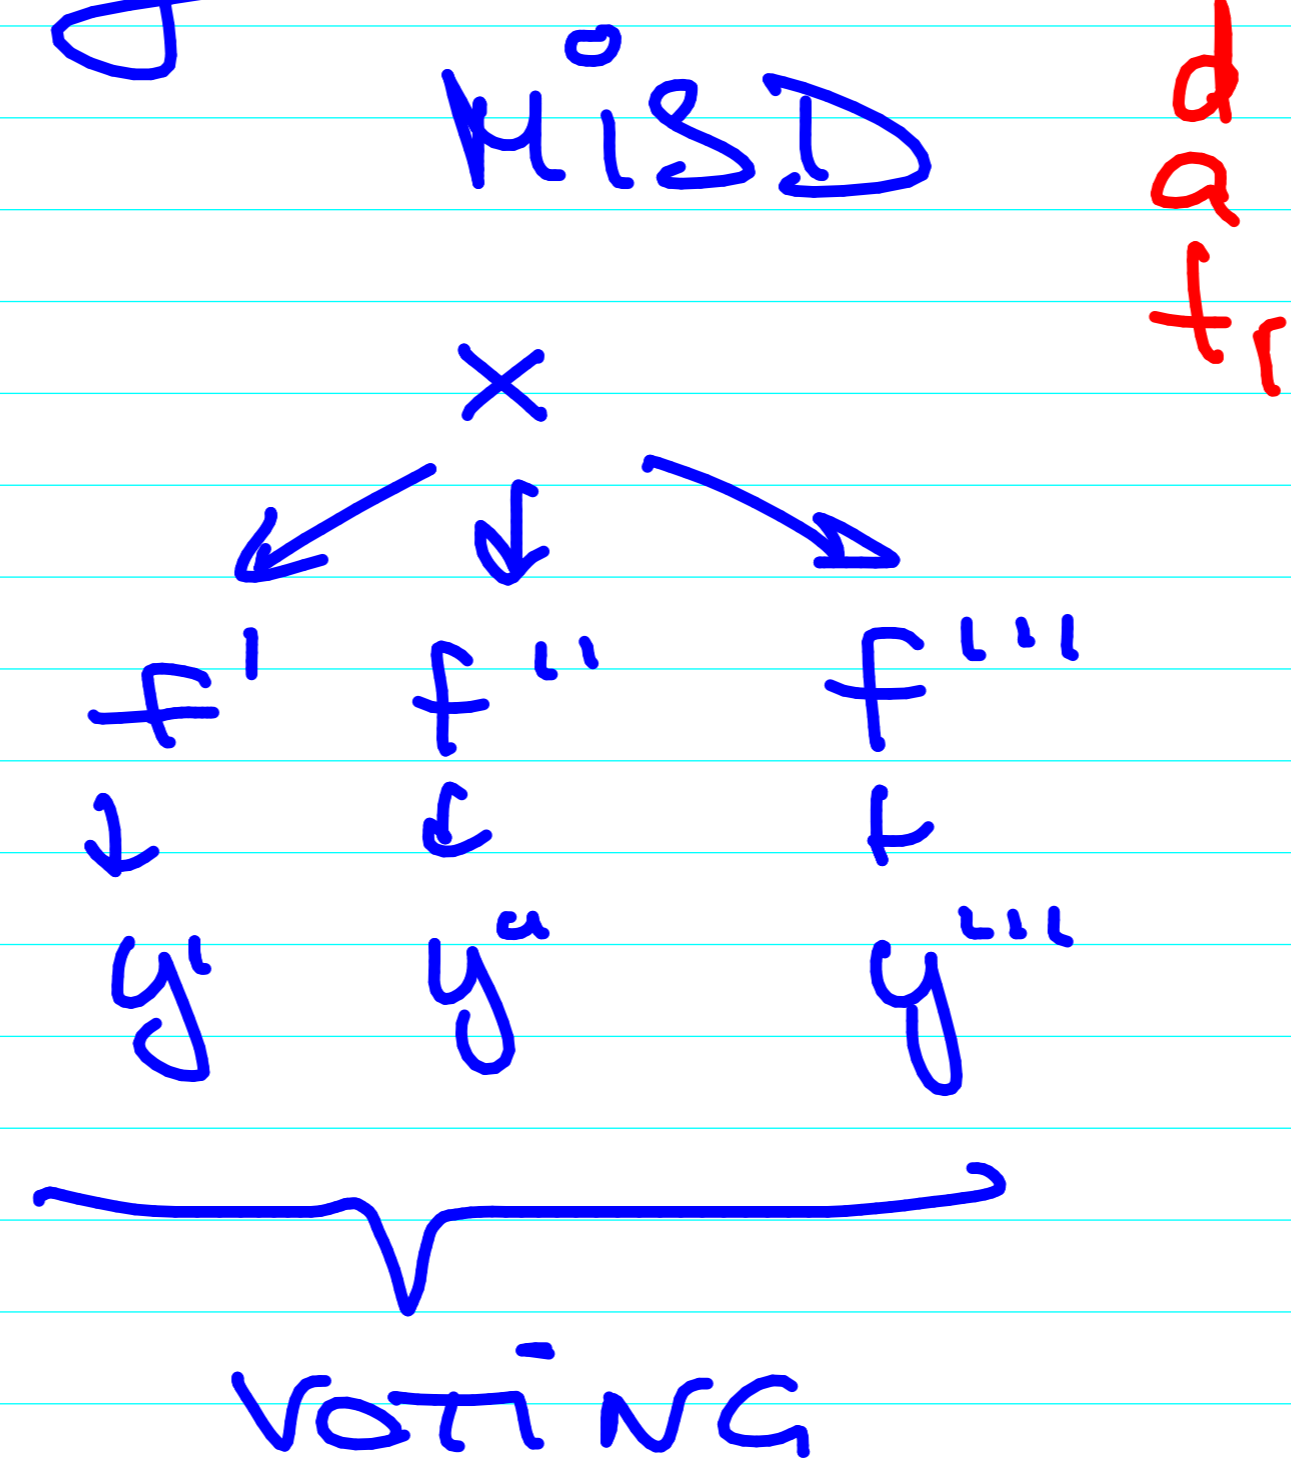 MiSD
d
a
t
x
f' f'' f'''
y' y'' y'''
VOTiNG